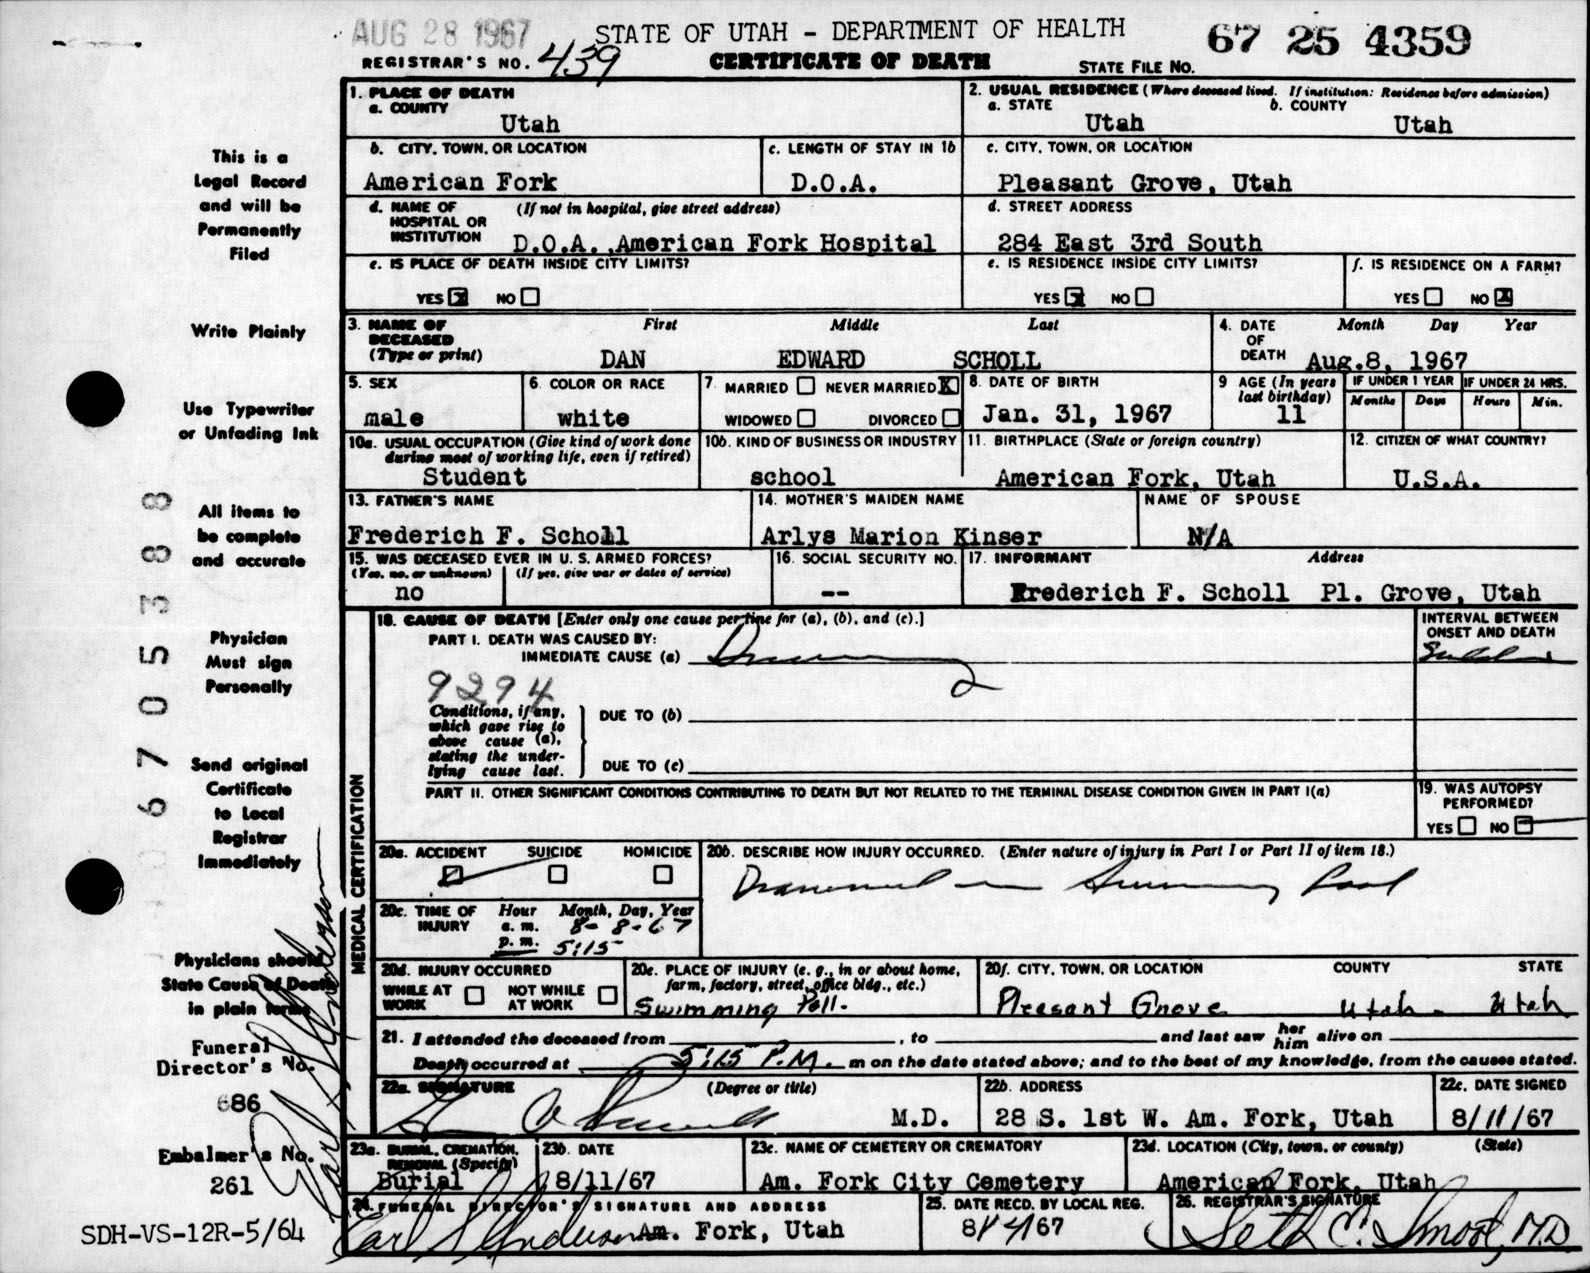 AUG 28 1967
STATE OF UTAH - DEPARTMENT OF HEALTH
67 25 4359
REGISTRAR'S NO. 439
CERTIFICATE OF DEATH
STATE FILE NO.
1. PLACE OF DEATH
a. COUNTY
Utah
2. USUAL RESIDENCE (Where deceased lived. If institution: Residence before admission)
a. STATE
Utah
b. COUNTY
Utah
b. CITY, TOWN, OR LOCATION
American Fork
c. LENGTH OF STAY IN 1b
D.O.A.
c. CITY, TOWN, OR LOCATION
Pleasant Grove, Utah
d. NAME OF HOSPITAL OR INSTITUTION
(If not in hospital, give street address)
D.O.A. American Fork Hospital
d. STREET ADDRESS
284 East 3rd South
e. IS PLACE OF DEATH INSIDE CITY LIMITS?
YES X NO
e. IS RESIDENCE INSIDE CITY LIMITS?
YES X NO
f. IS RESIDENCE ON A FARM?
YES NO X
3. NAME OF DECEASED
(Type or print)
First Middle Last
DAN EDWARD SCHOLL
4. DATE OF DEATH
Month Day Year
Aug.8, 1967
5. SEX
male
6. COLOR OR RACE
white
7. MARRIED NEVER MARRIED X
WIDOWED DIVORCED
8. DATE OF BIRTH
Jan. 31, 1967
9 AGE (In years last birthday)
11
IF UNDER 1 YEAR
Months Days
IF UNDER 24 HRS.
Hours Min.
10a. USUAL OCCUPATION (Give kind of work done during most of working life, even if retired)
Student
10b. KIND OF BUSINESS OR INDUSTRY
school
11. BIRTHPLACE (State or foreign country)
American Fork, Utah
12. CITIZEN OF WHAT COUNTRY?
U.S.A.
13. FATHER'S NAME
Frederich F. Scholl
14. MOTHER'S MAIDEN NAME
Arlys Marion Kinser
NAME OF SPOUSE
N/A
15. WAS DECEASED EVER IN U. S. ARMED FORCES?
(Yes, no, or unknown) (If yes, give war or dates of service)
no
16. SOCIAL SECURITY NO.
--
17. INFORMANT Address
Frederich F. Scholl Pl. Grove, Utah
MEDICAL CERTIFICATION
18. CAUSE OF DEATH [Enter only one cause per line for (a), (b), and (c).]
PART I. DEATH WAS CAUSED BY:
IMMEDIATE CAUSE (a) Drowning
INTERVAL BETWEEN ONSET AND DEATH
Sudden
9294
Conditions, if any, which gave rise to above cause (a), stating the underlying cause last.
DUE TO (b)
DUE TO (c)
PART II. OTHER SIGNIFICANT CONDITIONS CONTRIBUTING TO DEATH BUT NOT RELATED TO THE TERMINAL DISEASE CONDITION GIVEN IN PART I(a)
19. WAS AUTOPSY PERFORMED?
YES NO
20a. ACCIDENT SUICIDE HOMICIDE
20b. DESCRIBE HOW INJURY OCCURRED. (Enter nature of injury in Part I or Part II of item 18.)
Drowned in Swimming Pool
20c. TIME OF INJURY
Hour Month, Day, Year
a. m. 8-8-67
p. m. 5:15
20d. INJURY OCCURRED
WHILE AT WORK NOT WHILE AT WORK
20e. PLACE OF INJURY (e. g., in or about home, farm, factory, street, office bldg., etc.)
Swimming Poll.
20f. CITY, TOWN, OR LOCATION COUNTY STATE
Pleasant Grove Utah. Utah
21. I attended the deceased from , to and last saw her him alive on
Death occurred at 5:15 P.M. m on the date stated above; and to the best of my knowledge, from the causes stated.
22a. SIGNATURE (Degree or title)
M.D.
22b. ADDRESS
28 S. 1st W. Am. Fork, Utah
22c. DATE SIGNED
8/11/67
23a. BURIAL, CREMATION, REMOVAL (Specify)
Burial
23b. DATE
8/11/67
23c. NAME OF CEMETERY OR CREMATORY
Am. Fork City Cemetery
23d. LOCATION (City, town, or county) (State)
American Fork, Utah
24. FUNERAL DIRECTOR'S SIGNATURE AND ADDRESS
Earl S Anderson Am. Fork, Utah
25. DATE RECD. BY LOCAL REG.
8/14/67
26. REGISTRAR'S SIGNATURE
Seth E. Smoot, M.D.
This is a
Legal Record
and will be
Permanently
Filed
Write Plainly
Use Typewriter
or Unfading Ink
All items to
be complete
and accurate
Physician
Must sign
Personally
Send original
Certificate
to Local
Registrar
Immediately
Physicians should
State Cause of Death
in plain terms
Funeral
Director's No.
686
Embalmer's No.
261
Earl S Anderson
67053888
SDH-VS-12R-5/64